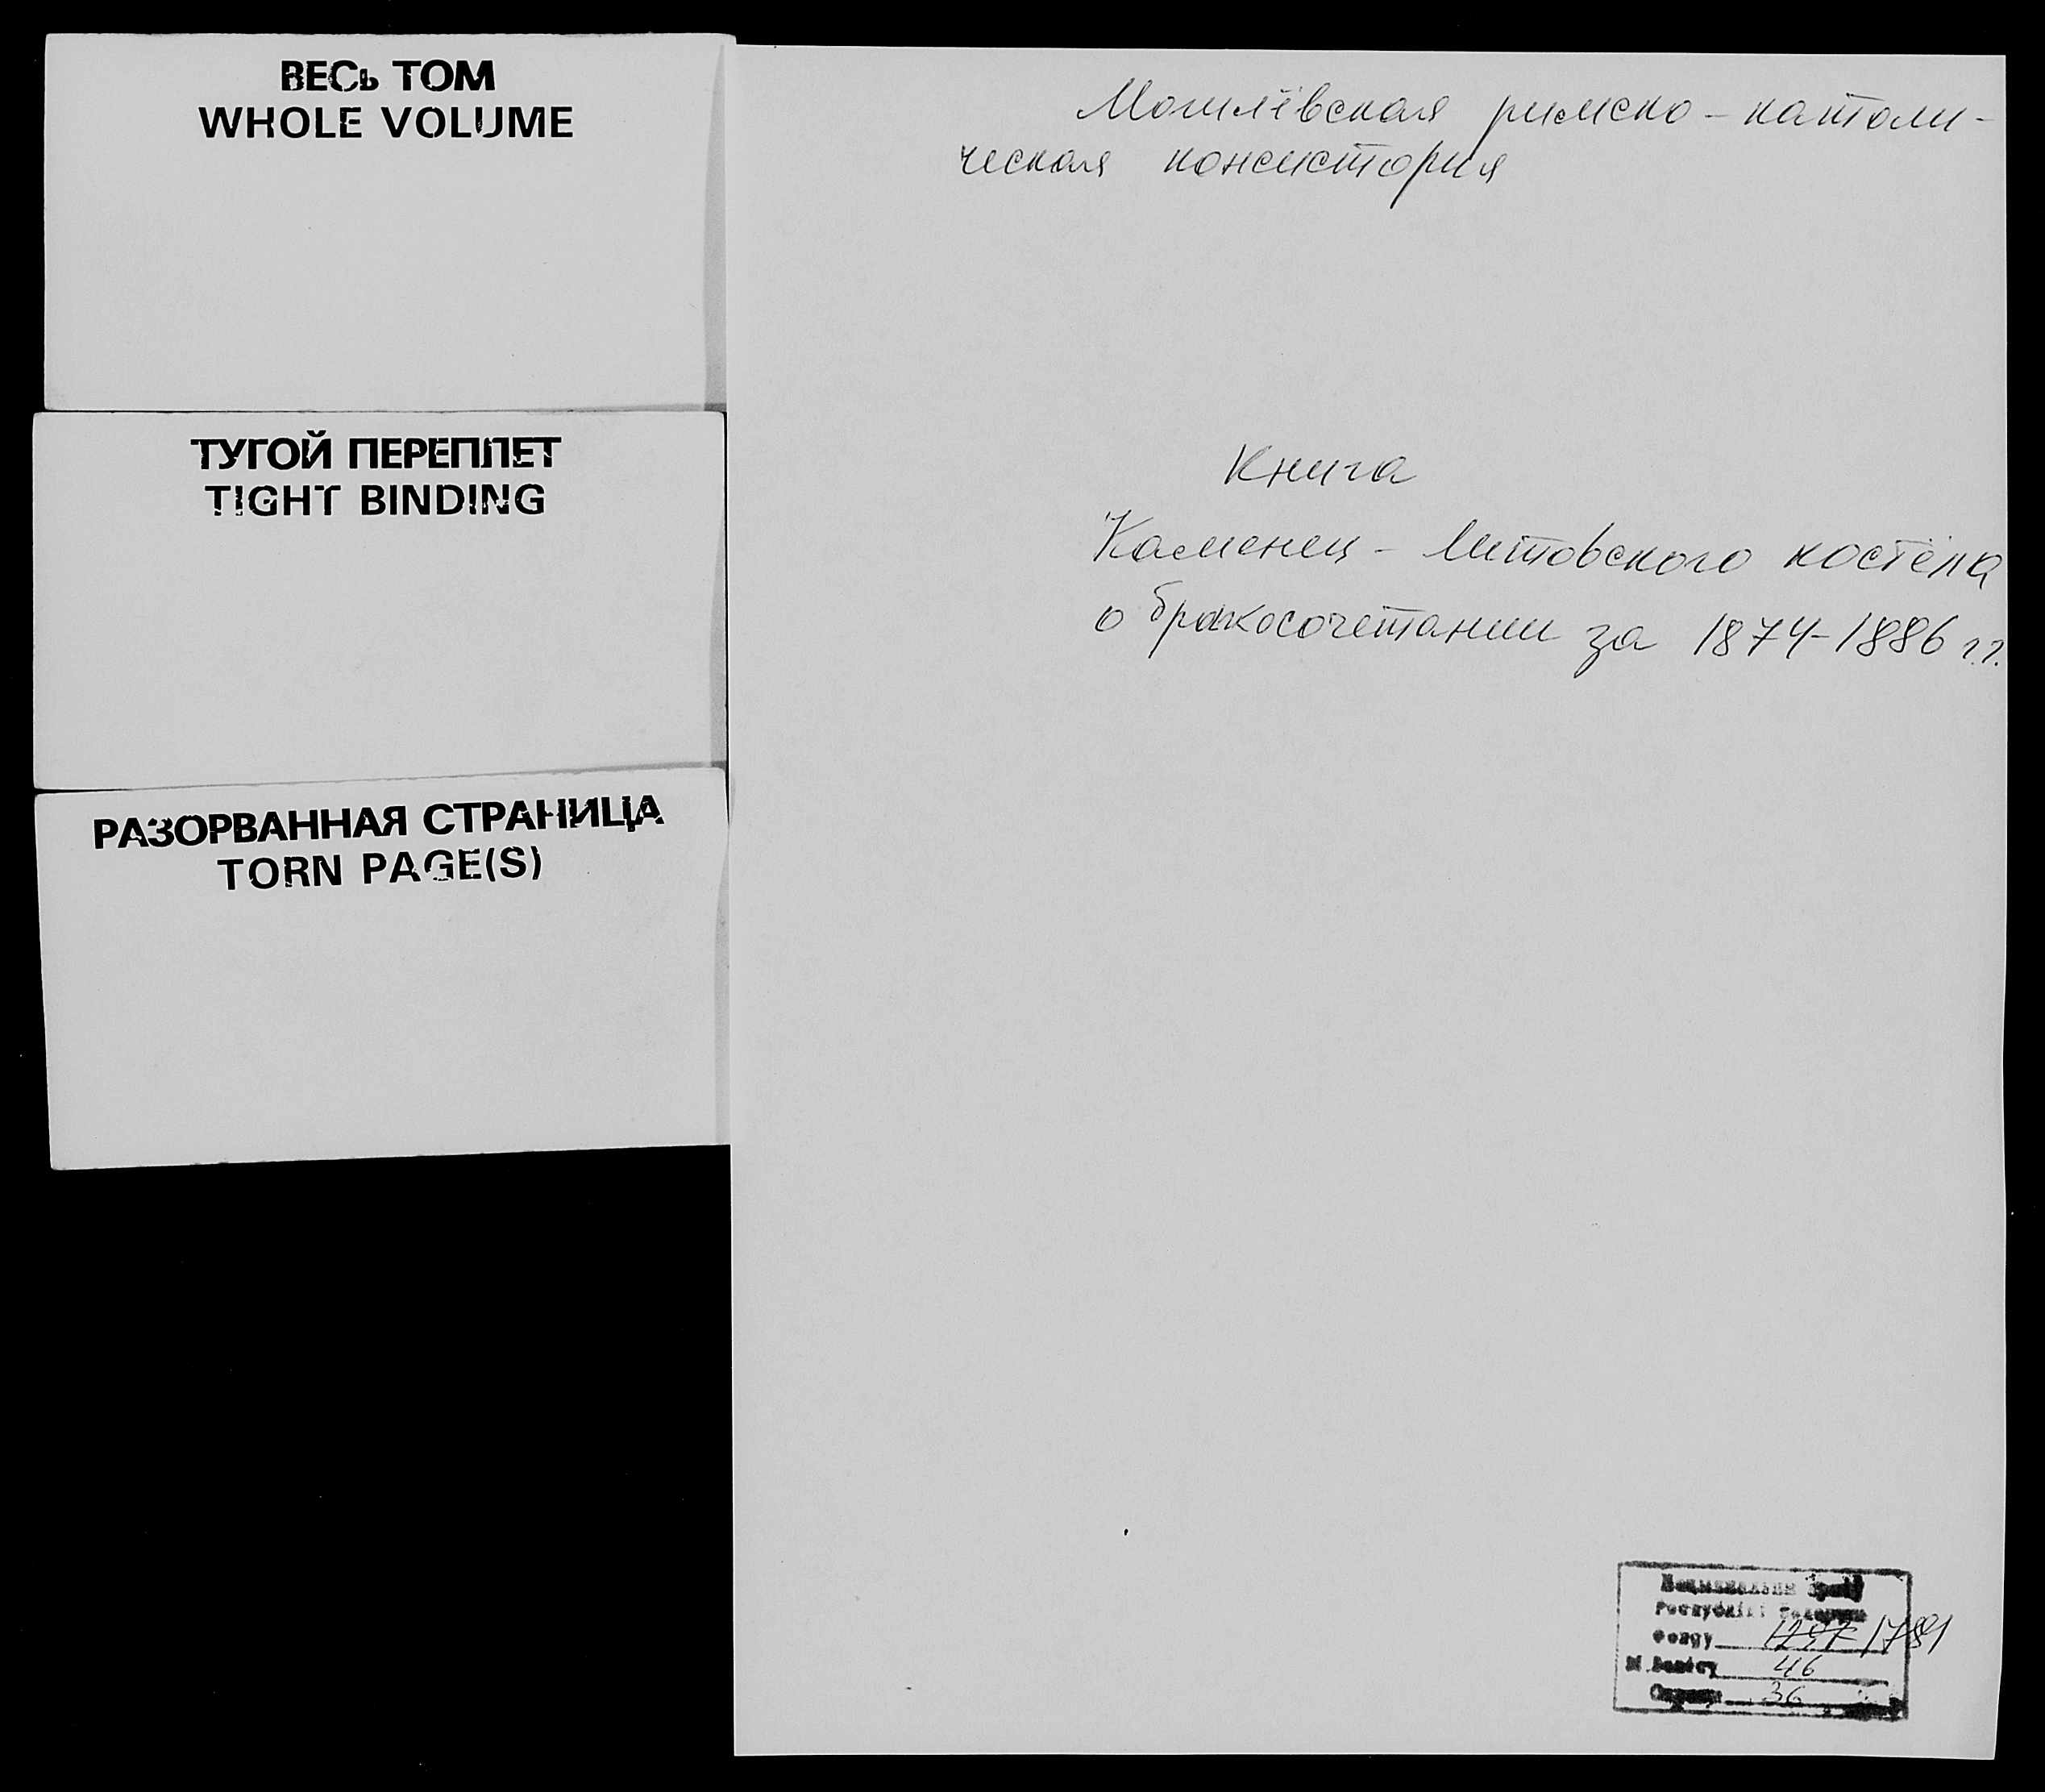 ВЕСЬ ТОМ
WHOLE VOLUME
ТУГОЙ ПЕРЕПЛЕТ
TIGHT BINDING
РАЗОРВАННАЯ СТРАНИЦА
TORN PAGE(S)
Могилёвская римско-католи-
ческая консистория
Книга
Каменец-Литовского костёла
о бракосочетании за 1874-1886 г.г.
Фонду 1781
46
36